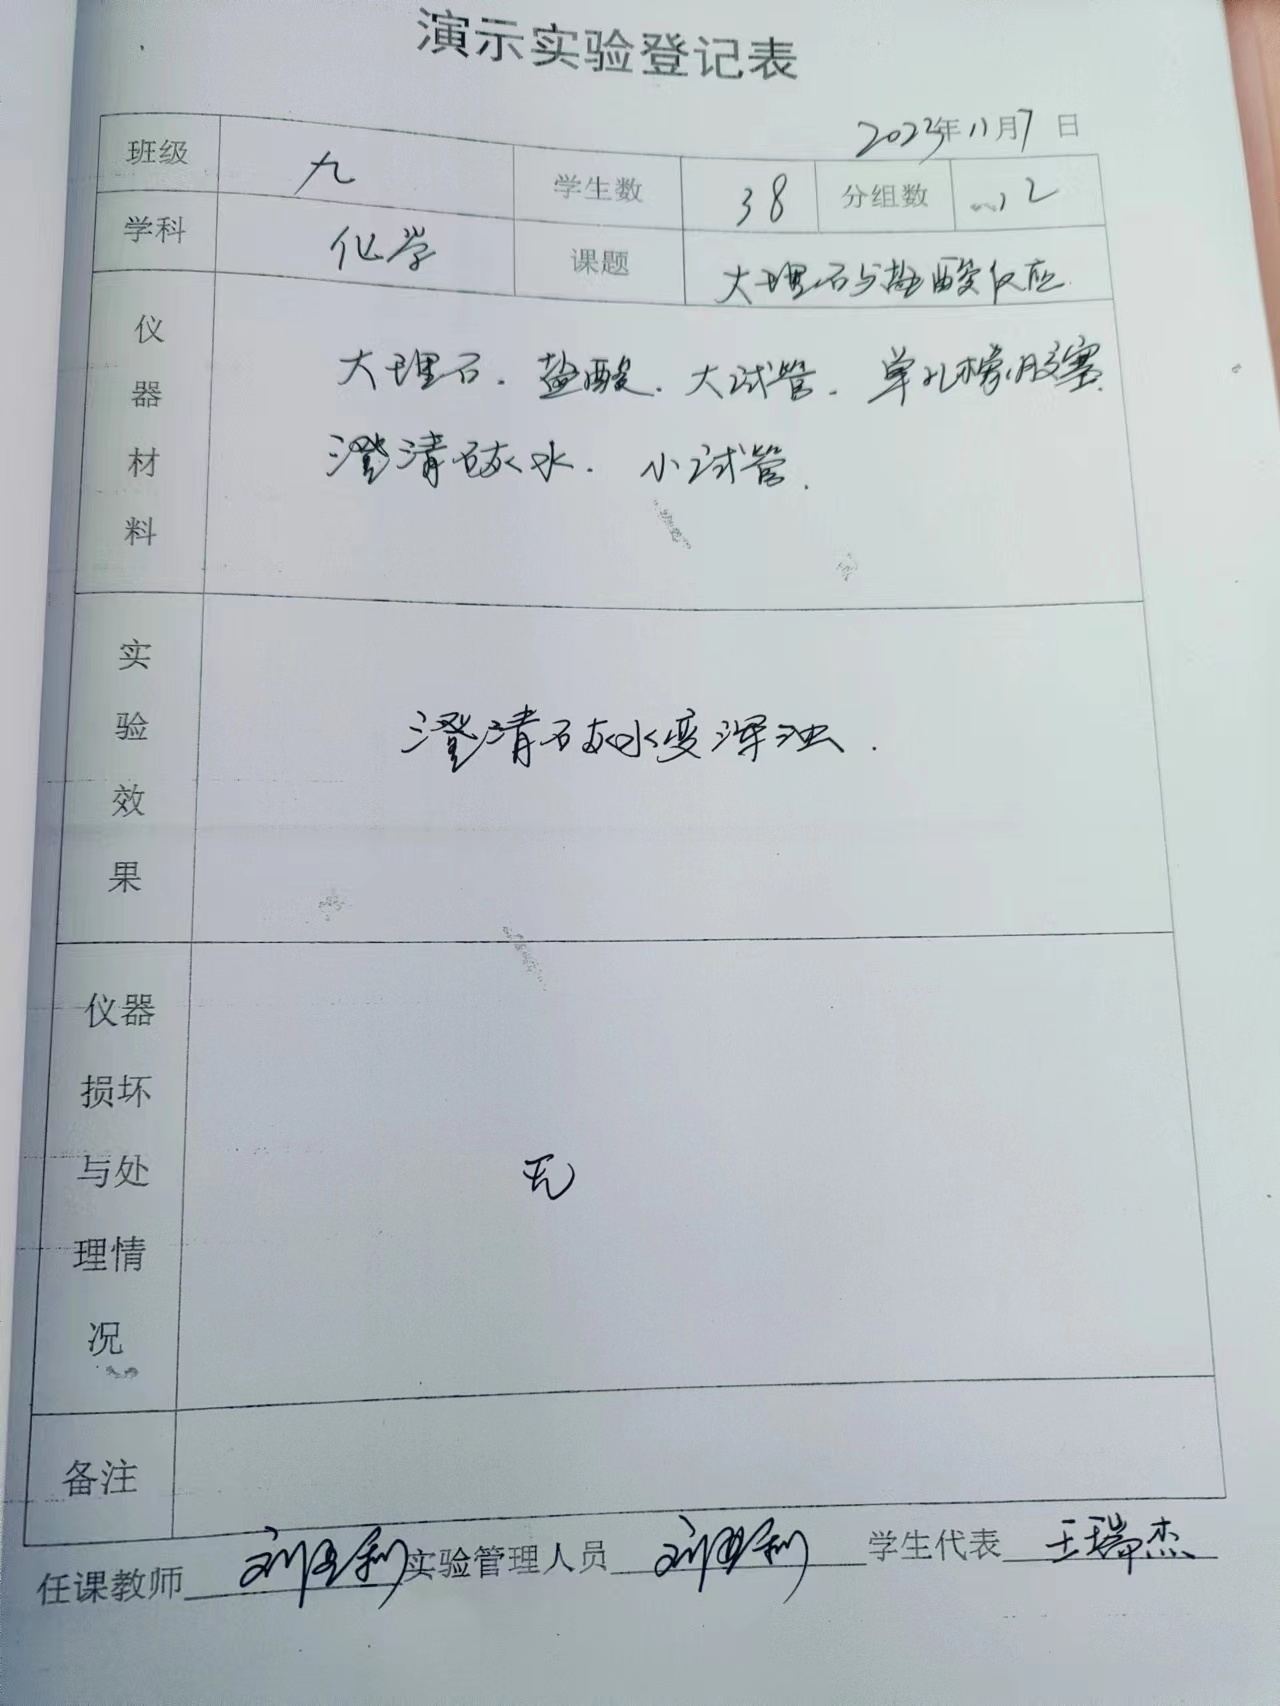 演示实验登记表
2023年11月7日
班级 九 学生数 38 分组数 12
学科 化学 课题 大理石与盐酸反应
仪器材料 大理石. 盐酸. 大试管. 单孔橡胶塞.
澄清石灰水. 小试管.
实验效果 澄清石灰水变浑浊.
仪器损坏与处理情况 无
备注
任课教师 实验管理人员 学生代表 王瑞杰